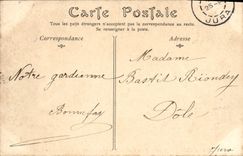 Carte Postale
Tous les pays étrangers n'acceptent pas la correspondance au recto.
Se renseigner à la poste.
Correspondance
Adresse
JURA
Madame
Notre gardienne
Bastit Riondey
Dôle
Jura